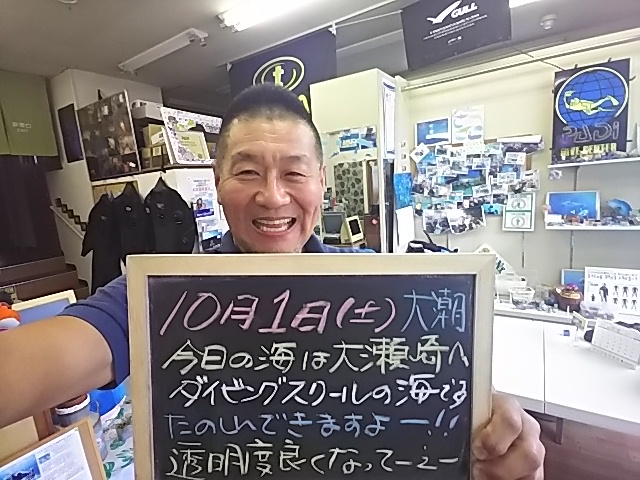 GULL
PADI
DIVE CENTER
10月1日(土)大潮
今日の海は大瀬崎へ
ダイビングスクールの海でする
たのしんできますよー!!
透明度良くなってーえー